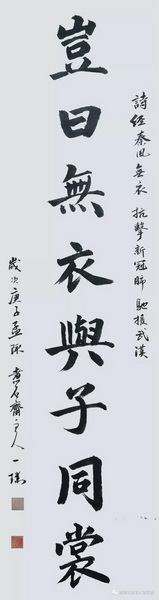 詩經秦風無衣 抗擊新冠肺 馳援武漢
豈曰無衣與子同裳
歲次庚子孟陬 黃石齋主人一瑞